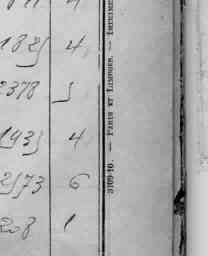 1825 4
2378 5
1935 4
2573 6
208 1
3109-10. — PARIS ET LIMOGES. — IMPRIME